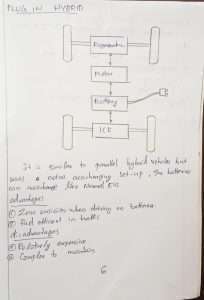 PLUG IN HYBRID
Regenerative
Motor
Battery
ICE
It is similer to parallel hybrid vehicles but
uses a extra recharging set-up, the batteries
can recharge like Normal EVs
advantages
① Zero emissions when driving on batteries
② Fuel efficient in traffic
disadvantages
① Relatively expensive
② Complex to maintain
6